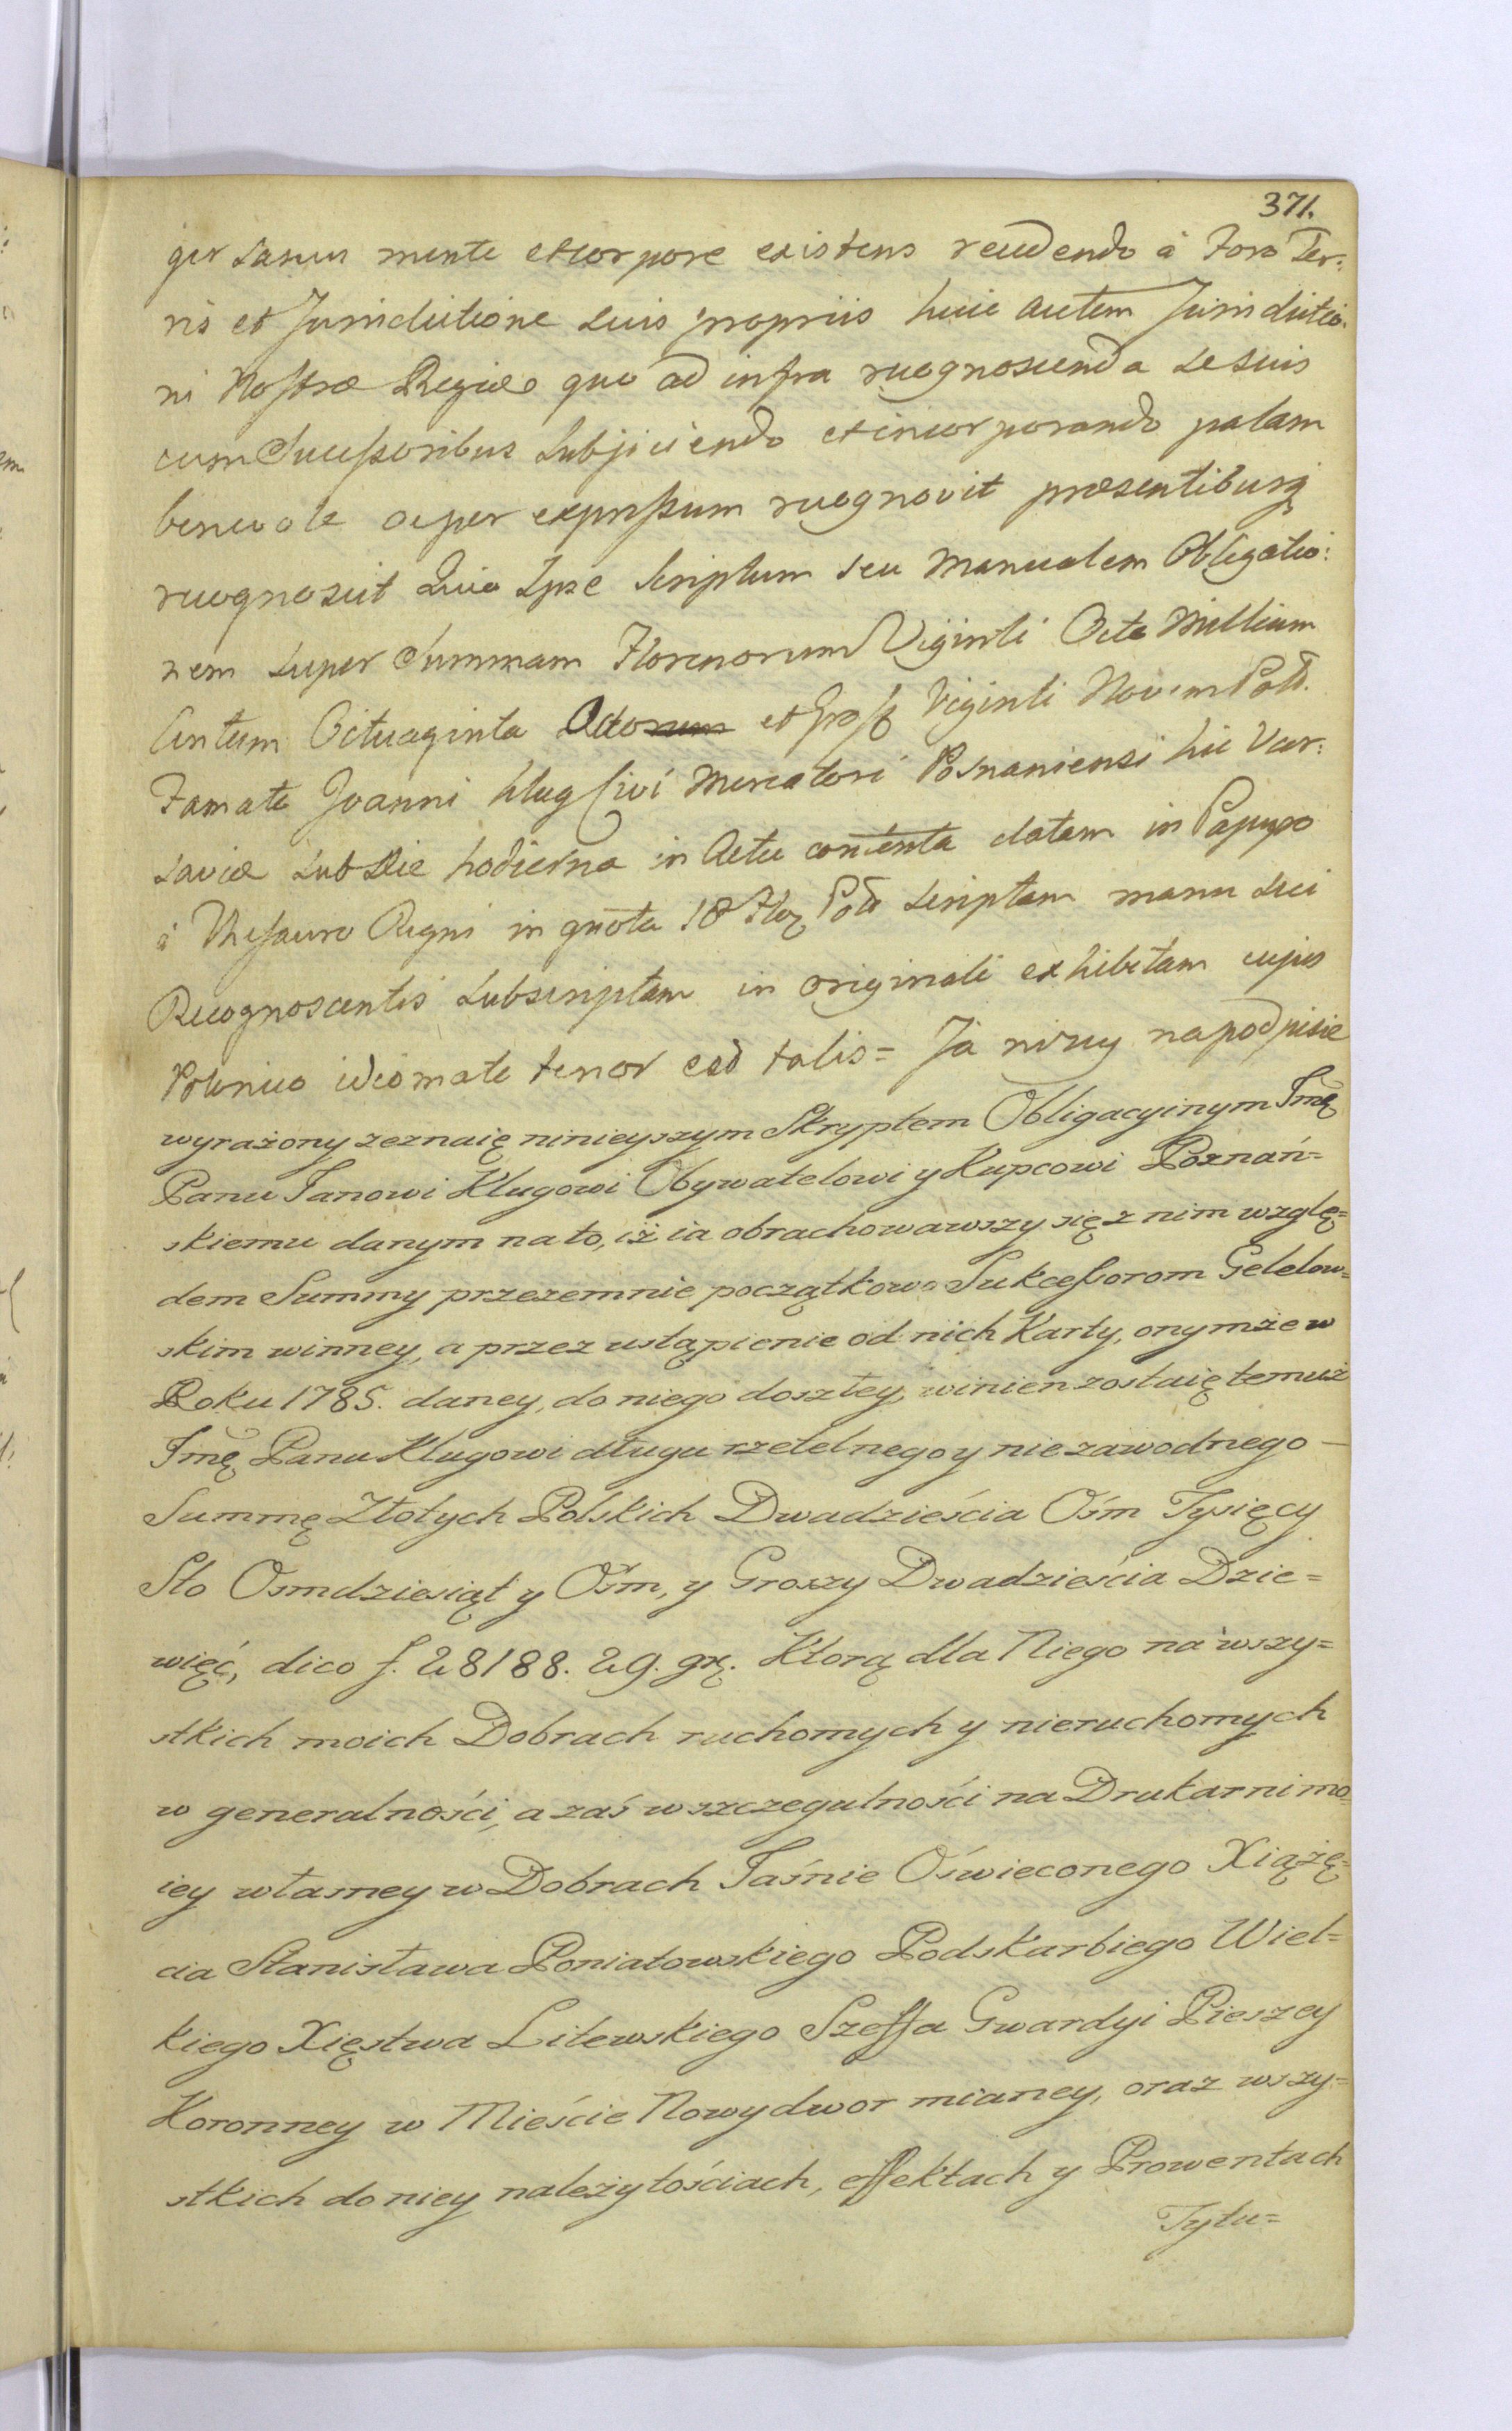 371.
ger sanus mente et corpore existens recedendo à Foro Ter:
ris et Jurisdictione suis propriis huic autem Jurisdictio:
ni Nostræ Regiæ quo ad infra recognoscenda se suis
cum Successoribus subjiciendo et incorporando palam
benevole ac per expressum recognovit præsentibusq
recognoscit Quia Ipse Scriptum seu Manualem Obligatio:
nem super Summam Florenorum Viginti Octo Millium
Centum Octuaginta Octo et Gross Viginti Novem Poll.
Famato Joanni Klug Civi Mercatori Posnaniensi hic Var:
saviæ sub Die hodierna in Actu contenta datam in Papyro
à Thesauro Regni in quota 18 Flor Poll scriptam manu sui
Recognoscentis subscriptam in originali exhibitam cujus
Polonico idiomate tenor est talis = Ja niżey na podpisie
wyrażony zeznaię ninieyszym Skryptem Obligacyinym Jmę
Panu Janowi Klugowi Obywatelowi y Kupcowi Poznań=
skiemu danym na to, iż ia obrachowawszy się z nim wzglę=
dem Summy przezemnie początkowo Sukcessorom Gelelow=
skim winney, a przez ustąpienie od nich Karty, onymże w
Roku 1785. daney, do niego doszłey, winien zostaię temuż
Jmę Panu Klugowi długu rzetelnego y niezawodnego —
Summę Złotych Polskich Dwadzieścia Ośm Tysięcy
Sto Osmdziesiąt y Ośm, y Groszy Dwadzieścia Dzie=
więć, dico f. 28188. 29. gr. Którą dla Niego na wszy=
stkich moich Dobrach ruchomych y nieruchomych
w generalności, a zaś w szczegulności na Drukarni mo=
iey własney w Dobrach Jaśnie Oświeconego Xiążę=
cia Stanisława Poniatowskiego Podskarbiego Wiel=
kiego Xięstwa Litewskiego Szeffa Gwardyi Pieszey
Koronney w Mieście Nowydwor mianey, oraz wszy=
stkich do niey należytościach, effektach y Prowentach
Tytu=